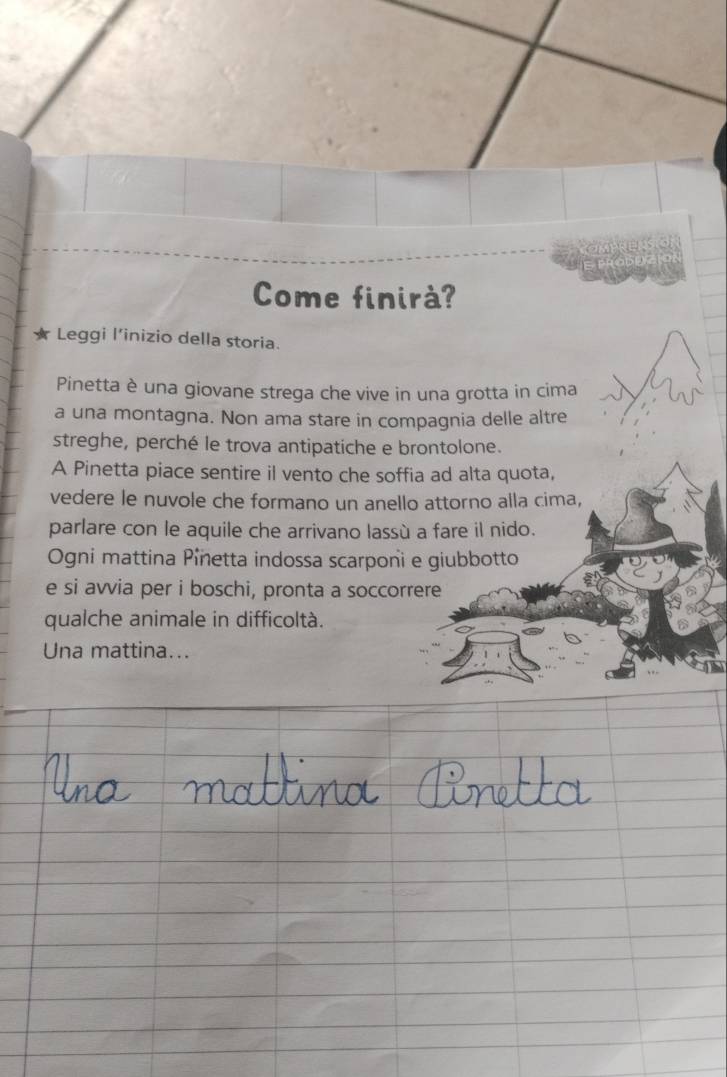 COMPRENSION
E PRODUZION
Come finirà?
★ Leggi l'inizio della storia.
Pinetta è una giovane strega che vive in una grotta in cima
a una montagna. Non ama stare in compagnia delle altre
streghe, perché le trova antipatiche e brontolone.
A Pinetta piace sentire il vento che soffia ad alta quota,
vedere le nuvole che formano un anello attorno alla cima,
parlare con le aquile che arrivano lassù a fare il nido.
Ogni mattina Pinetta indossa scarponi e giubbotto
e si avvia per i boschi, pronta a soccorrere
qualche animale in difficoltà.
Una mattina...
Una mattina Pinetta